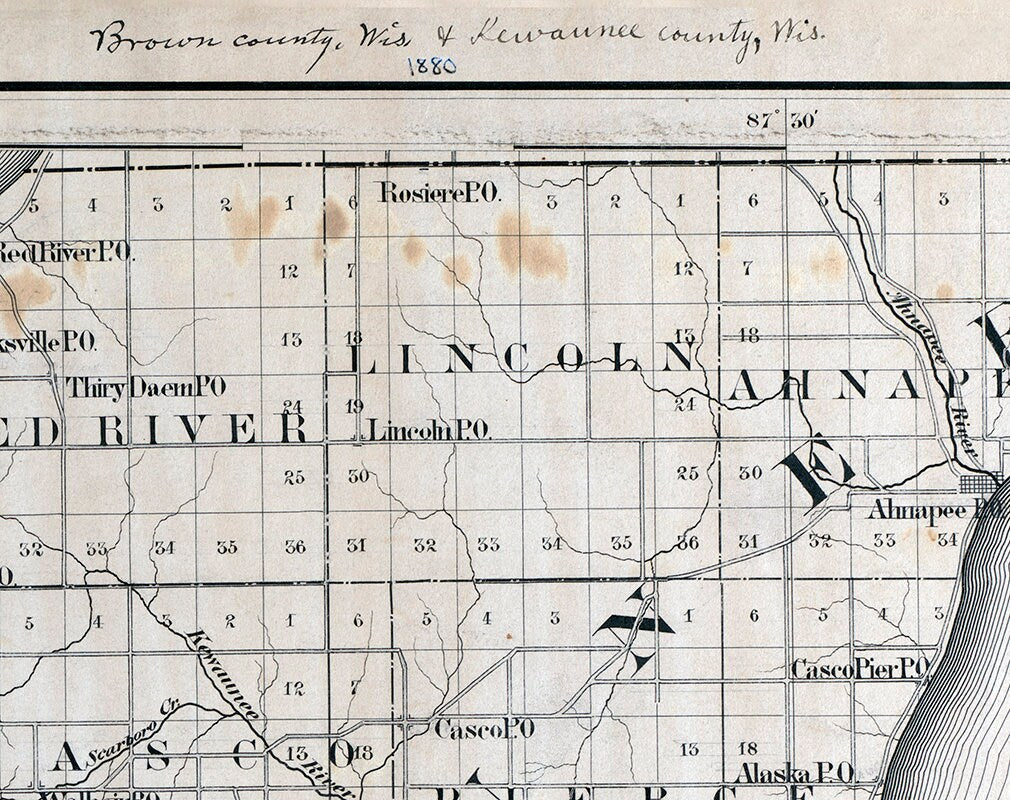 Brown county, Wis. & Kewaunee county, Wis.
1880
87° 30'
Rosiere P.O.
5 4 3 2 1 6 3 2 1 6 5 4 3
Red River P.O.
12 7 12 7
Ahnapee River
ksville P.O.
13 18 13 18
LINCOLN
Thiry Daem P.O
AHNAPE
24 19 24
ED RIVER
Lincoln P.O.
25 30 25 30
E
Ahnapee P.O.
32 33 34 35 36 31 32 33 34 35 36 31 32 33 34
O.
5 4 3 2 1 6 5 4 3 1 6 5 4 3
A
Kewaunee River
Casco Pier P.O.
12 7
Scarboro Cr.
Casco P.O
ASCO
13 18 13 18
Alaska P.O.
PIERCE